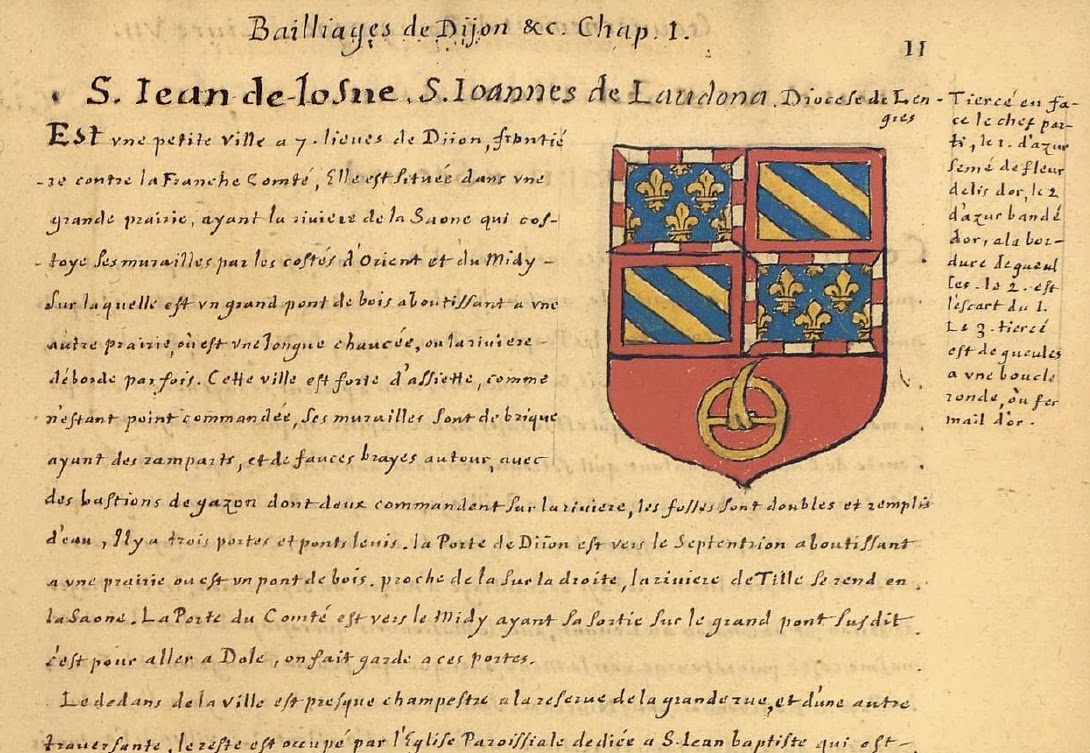 Bailliages de Dijon &c. Chap. 1.
11
S. Iean de-losne. S. Ioannes de Laudona. Diocese de Len-
gres
Est vne petite ville a 7. lieues de Diion, frõtié
-re contre la Franche Comté, Elle est située dans vne
grande prairie, ayant la riviere de la Saone qui cos-
-toye ses murailles par les costés d'Orient et du Midy -
sur laquelle est vn grand pont de bois aboutissant a vne
autre prairie, où est vne longue chaucée, ou la riviere -
déborde par fois. Cette ville est forte d'assiette, comme
n'estant point commandée, ses murailles sont de brique
ayant des ramparts, et de fauces brayes autour, avec
des bastions de gazon dont deux commandent sur la riviere, les fossés sont doubles et remplis
d'eau, Il y a trois portes et ponts levis. la Porte de Diion est vers le Septentrion aboutissant
a vne prairie ou est vn pont de bois. proche de la sur la droite, la riviere de Tille se rend en
la Saone. La Porte du Comté est vers le Midy ayant sa sortie sur le grand pont susdit
c'est pour aller a Dole, on fait garde a ces portes.
Le dedans de la ville est presque champestre a la reserve de la grande rue, et d'une autre
traversante, le reste est occupé par l'Eglise Paroissiale dediée a S. Iean baptiste qui est -
Tiercé en fa-
ce le chef par-
ti, le 1. d'azur
semé de fleur
delis dor, le 2
d'azur bandé
dor, a la bor-
dure de gueul
les. le 2. est
l'escart du 1.
Le 3. tiercé
est de gueules
a vne boucle
ronde, où fer
mail d'or.